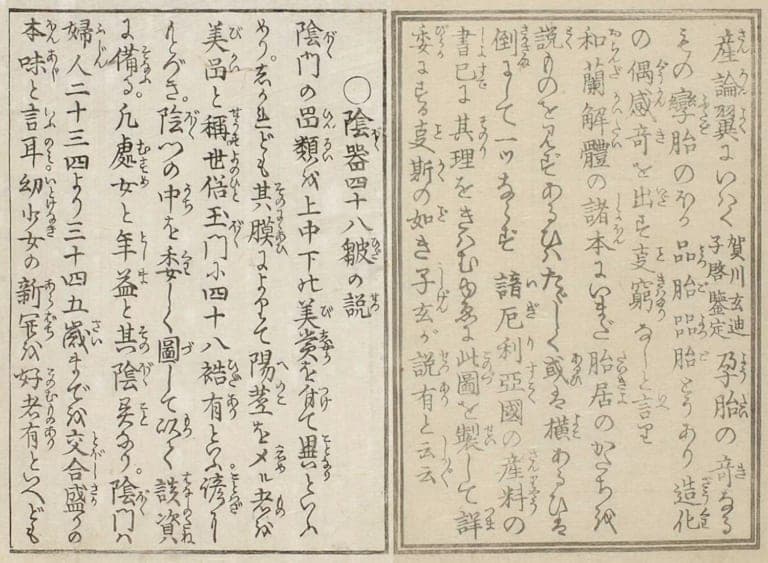 産論翼にいはく 賀川玄迪 子啓鑒定 孕胎の奇なる
もの孿胎のほか品胎㗊胎もあり造化
の偶感奇を出す事窮なしと言り
和蘭解體の諸本にいまだ胎居のかたちを
説ものを見ずあるひはたゞしく或は横あるひは
倒にして一ツならず諳厄利亞國の産科の
書已に其理をきはむゆゑに此圖を製して詳
委にする事斯の如き子玄が説有と云云
○陰器四十八皺の説
陰門の品類を上中下の美賞を付て異といふ
めり。しかれども其膜によりて陽莖を〆ル者を
美品と稱世俗玉門に四十八襞有といふ諺
陰門の中を委しく圖して以て談資
に備る凡處女と年益と其陰異なり。陰門は
婦人二十三四より三十四五歳までを交合盛りの
本味と言耳幼少女の新を好者有といへども